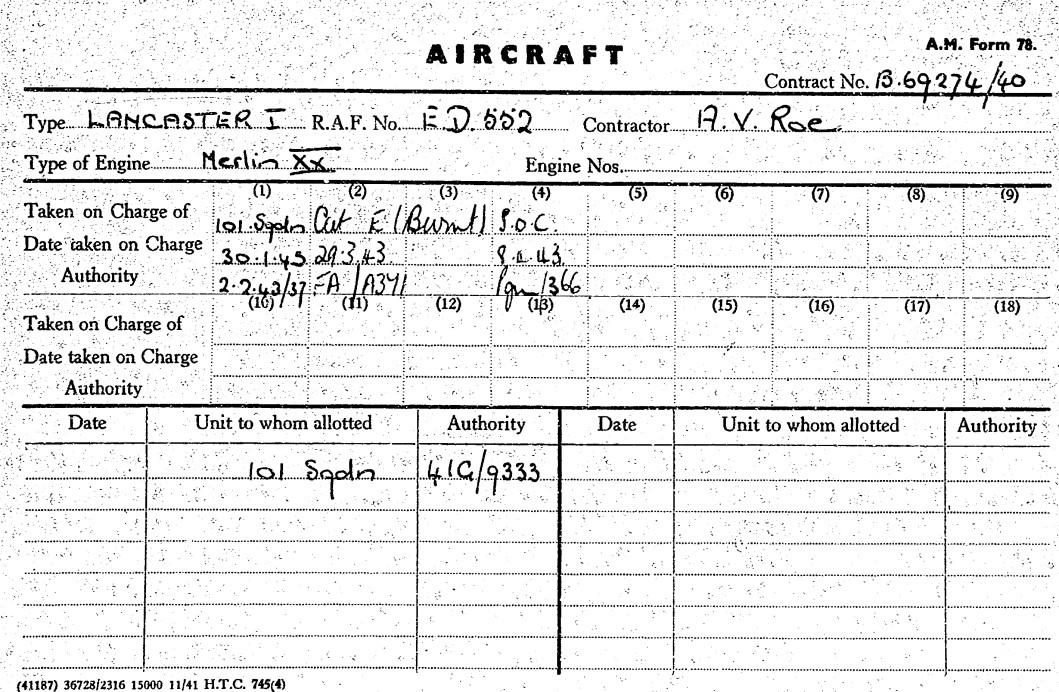 AIRCRAFT
A.M. Form 78.
Contract No. B.69274/40
Type LANCASTER I R.A.F. No. E.D.552 Contractor A.V. Roe
Type of Engine Merlin XX Engine Nos.
(1) (2) (3) (4) (5) (6) (7) (8) (9)
Taken on Charge of 101 Sqdn Cat E (Burnt) S.O.C.
Date taken on Charge 30.1.43 29.3.43 43
Authority 2.2.43/37 FA /A341 /366
(10) (11) (12) (13) (14) (15) (16) (17) (18)
Taken on Charge of
Date taken on Charge
Authority
Date Unit to whom allotted Authority Date Unit to whom allotted Authority
101 Sqdn 41G/9333
(41187) 36728/2316 15000 11/41 H.T.C. 745(4)